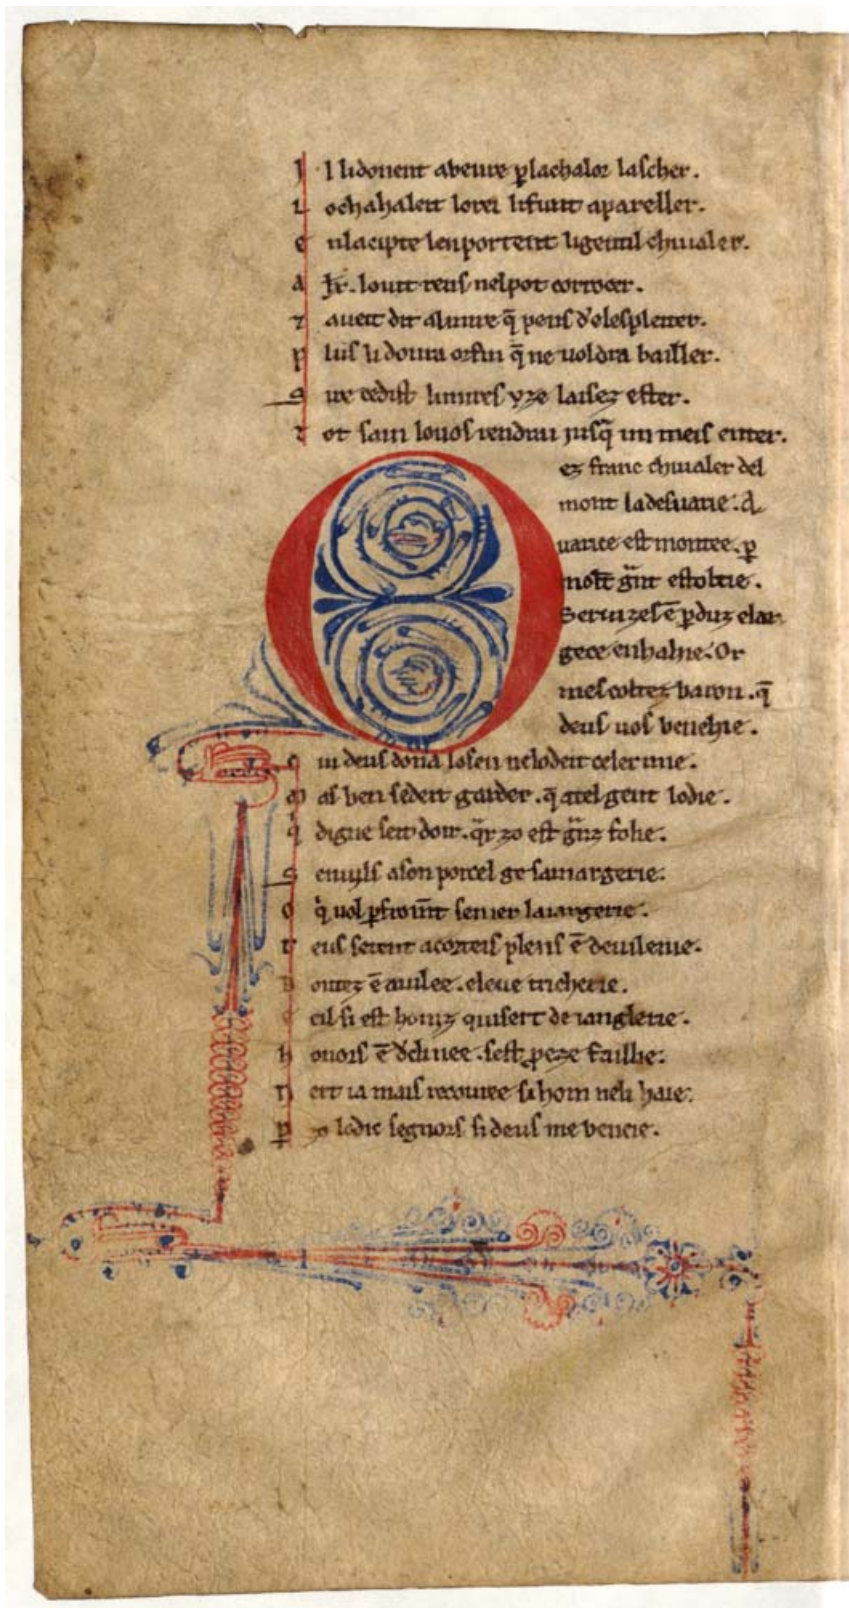 I l li donent abeure ꝑ la chalor lascher.
L och ahalett lorei li funt apareller.
E n la cipte lenportent li gentil chiualer.
A lix. louit reus nel pot corrocer.
⁊ auett dit aliuure q̄ pens d'elespleiter.
P lus li donra orfin q̄ ne uoldra bailler.
S ire cedist limires yze laisez ester.
T ot sain louos rendrai iusq̄ un meis enter.
O ez franc chiualer del
mont ladesuarie. A
uarice est montee. ꝑ
molt gͣnt estoltie.
Seruizes ē ꝑduz elar
gece enbahie. Or
mescoltez baron. q̄
deus uos benehie.
Q ui deus dona losen nelodeit celer mie.
M as ben sedeit garder. q̄ atel gent lodie.
q̇ digne seit doir. qͣr zo est gͣnz folie.
S emylf ason porcel ge samargerie.
O q̇ uol ꝑfrount semer la iargerie.
T eus serent acorteis pleris ē deuilenie.
B ontez ē auilee. eleue tricherie.
C cil si est honiz qui sert de ianglerie.
H onors ē declinee. sest proeze faillie.
N ert ia mais recouree si hom neli haie.
P or lodic segnors si deus me beneie.